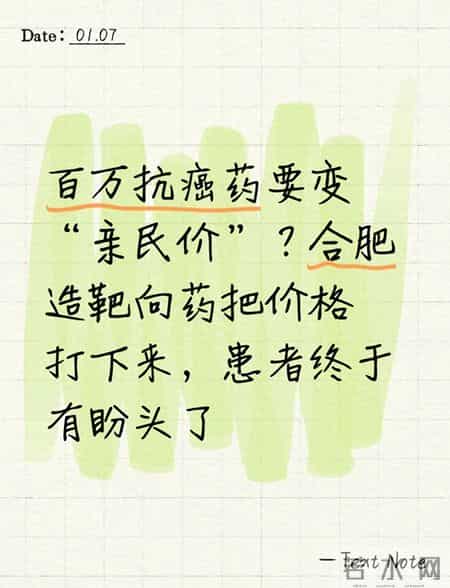 Date: 01.07
百万抗癌药要变
“亲民价”？合肥
造靶向药把价格
打下来，患者终于
有盼头了
— Text Note